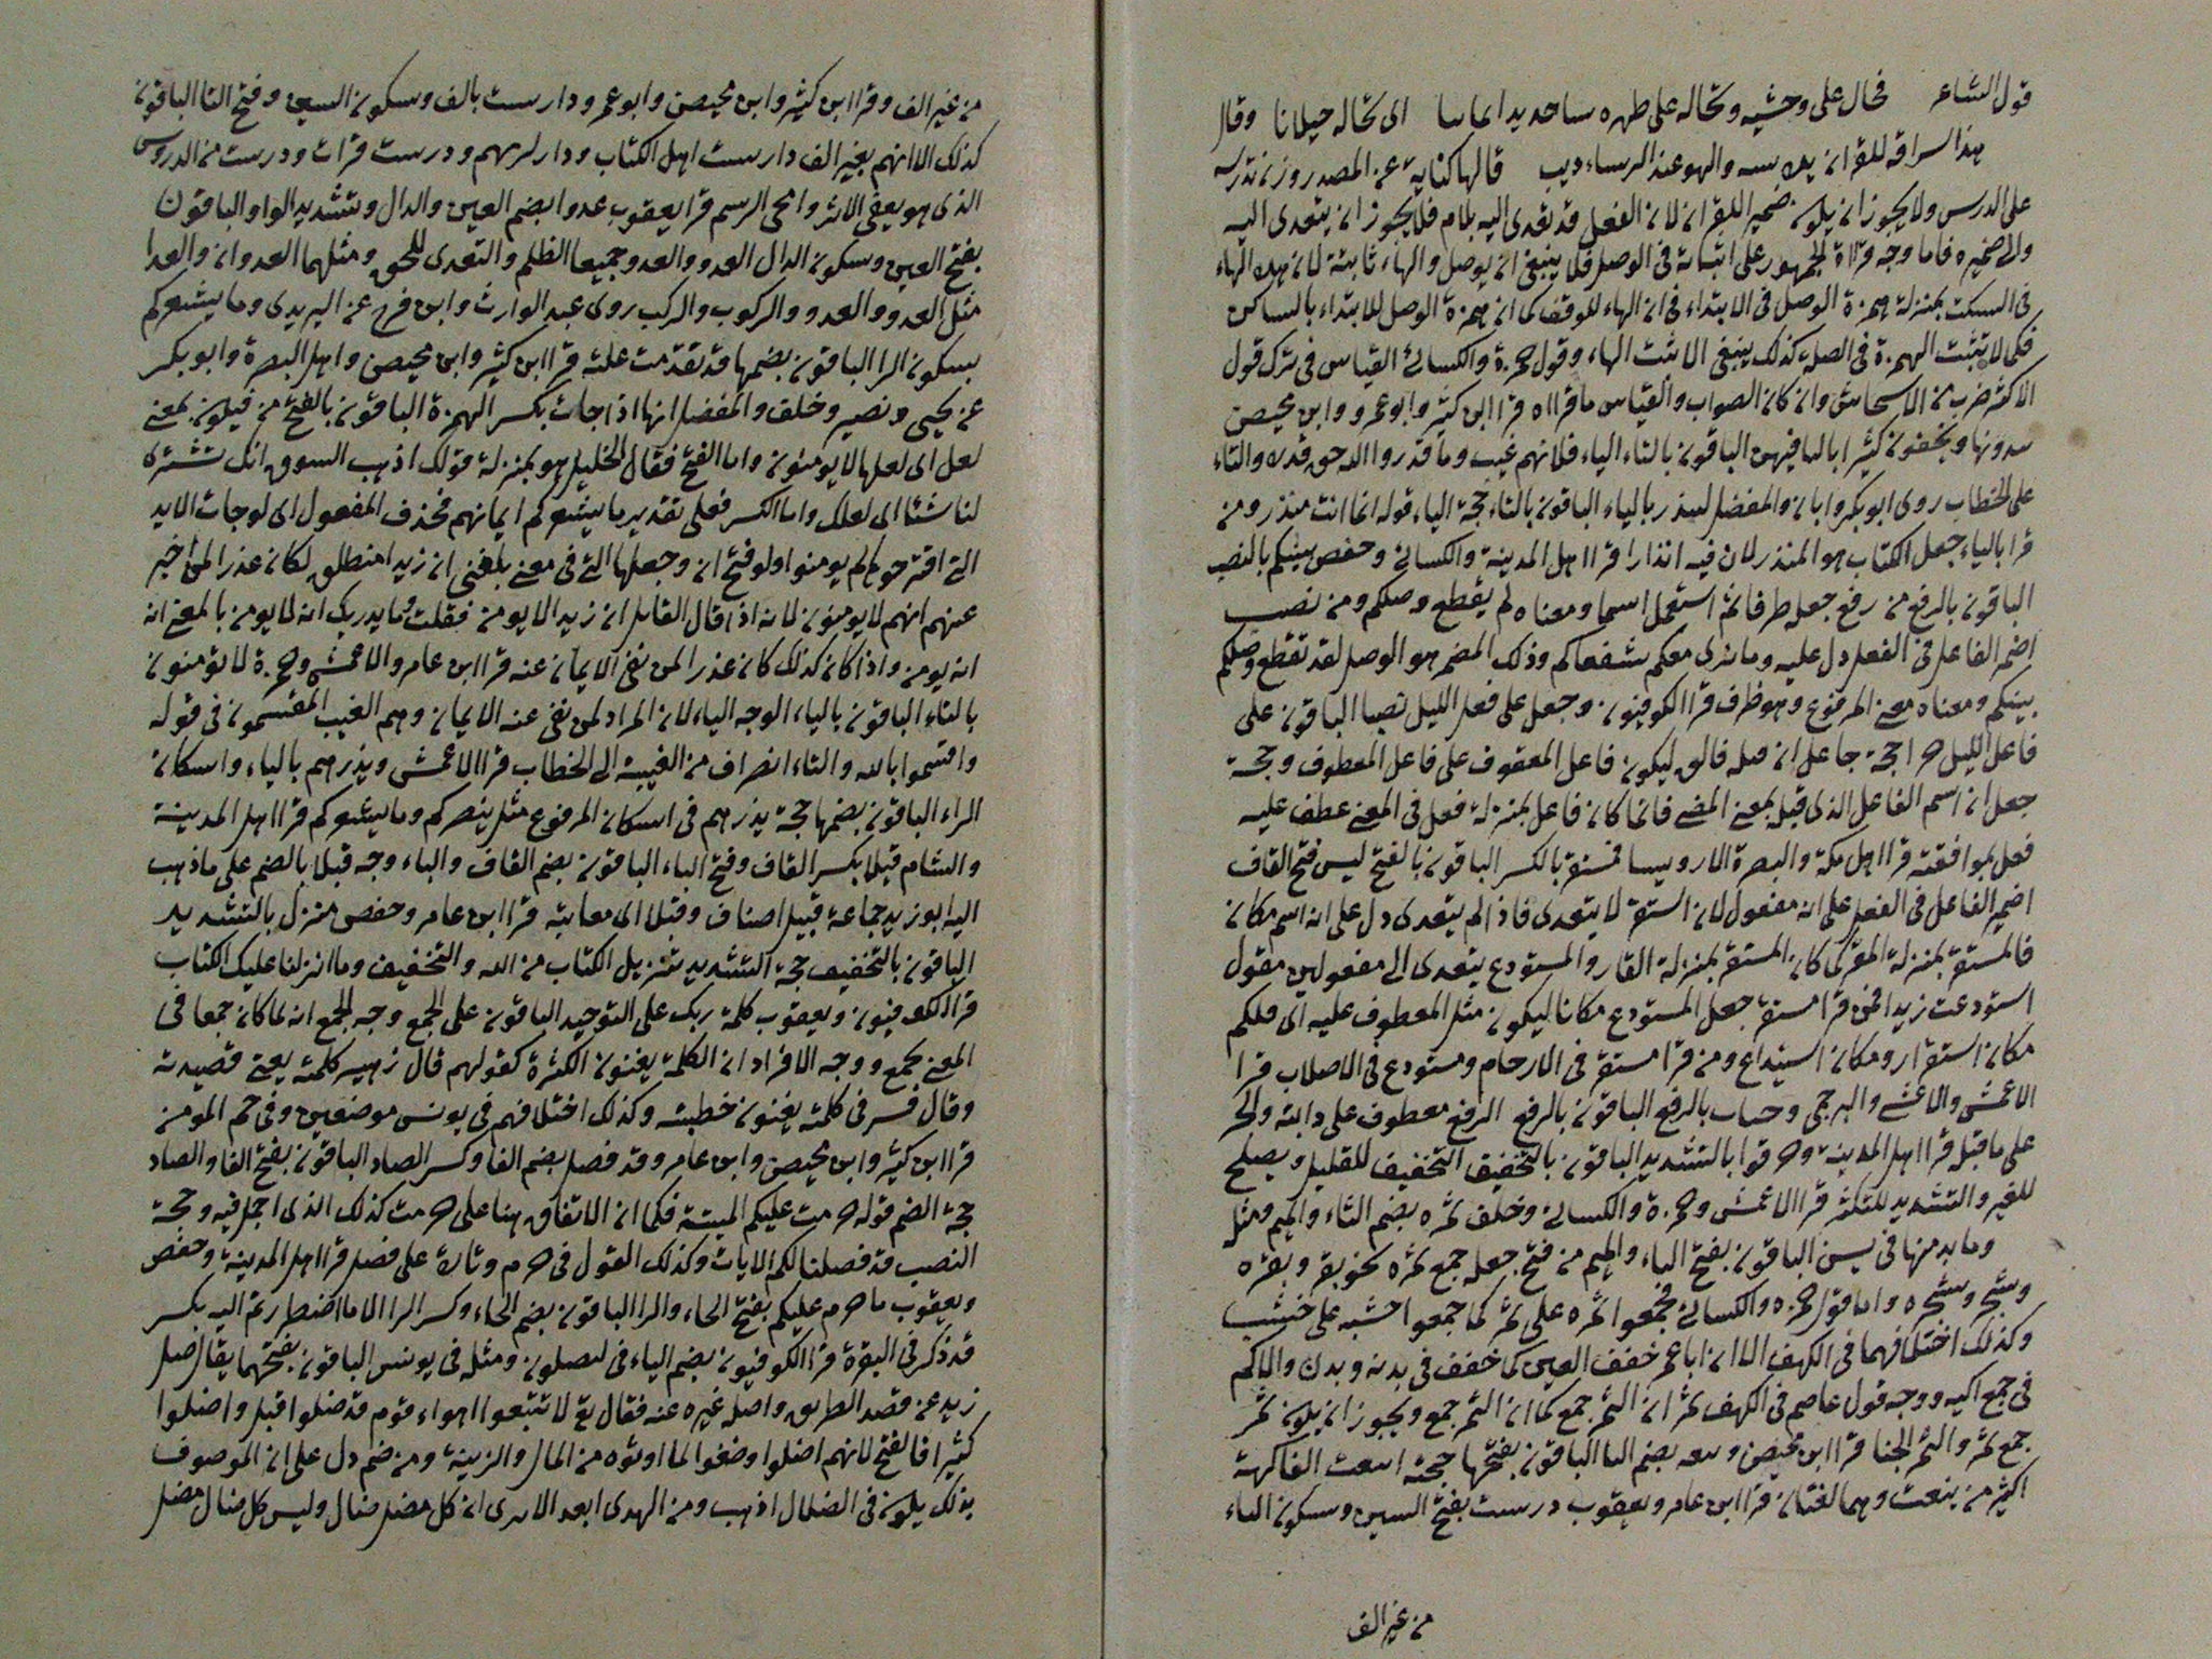 قول الشاعر فحال على وحشيه وتخاله على ظهره حديدا يمانيا اى تخاله خيلانا وقال
هذا سراقة للقران يدرسه والهو عند الرساء ديب فالها كناية عن المصدر وزن تدرسه
على الدرس ولا يجوز ان يكون ضمير القران لان الفعل قد تعدى اليه بلام فلا يجوز ان يتعدى اليه
والى ضميره فاما وجه قراة الجمهور على اثباته فى الوصل فلا ينبغى ان يوصل والهاء ثابتة لان هذه الهاء
فى السكت بمنزلة همزة الوصل فى الابتداء فى ان الهاء للوقف كما ان همزة الوصل للابتداء بالساكن
فكما لا تثبت الهمزة فى الصلة كذلك ينبغى الا تثبت الهاء وقول حمزة والكسائى القياس فى ترك قول
الاكثر ضرب من الاستحاش وان كان الصواب والقياس ما قراه قرا ابن كثير وابو عمرو وابن محيصن
يبدونها ويخفون كثيرا باليا فيهن الباقون بالتاء الياء فلانهم غيب وما قدروا الله حق قدره والتاء
على الخطاب روى ابو بكر وابان والمفضل لينذر بالياء الباقون بالتاء حجة الياء قوله انما انت منذر ومن
قرا بالياء جعل الكتاب هو المنذر لان فيه انذارا قرا اهل المدينة والكسائى وحفص بينكم بالنصب
الباقون بالرفع من رفع جعله ظرفا ثم استعمل اسما ومعناه لم يقطع وصلكم ومن نصب
اضمر الفاعل فى الفعل دل عليه وما نرى معكم شفعاكم وذلك المضمر هو الوصل لقد تقطع وصلكم
بينكم ومعناه معنى المرفوع وهو ظرف قرا الكوفيون وجعل على فعل الليل نصبا الباقون على
فاعل الليل جرا حجة جاعل ان قبله فالق ليكون فاعل المعطوف على فاعل المعطوف وحجة
جعل ان اسم الفاعل الذى قبله بمعنى المضى فانما كان فاعل بمنزلة فعل فى المعنى عطف عليه
فعل لموافقته قرا اهل مكة والبصرة الا رويسا فمستقر بالكسر الباقون بالفتح ليس فتح القاف
اضمر الفاعل فى الفعل على انه مفعول لان استقر لا يتعدى فاذا لم يتعدى دل على انه اسم مكان
فالمستقر بمنزلة المقر كما كان المستقر بمنزلة القار والمستودع يتعدى الى مفعولين مقول
استودعت زيدا فمن قرا مستقر جعل المستودع مكانا ليكون مثل المعطوف عليه اى فلكم
مكان استقرار ومكان استيداع ومن قرا مستقر فى الارحام ومستودع فى الاصلاب قرا
الاعمش والاعشى والبرجمى وجنات بالرفع الباقون بالرفع معطوف على دابة والجر
على ما قبله قرا اهل المدينة وخرقوا بالتشديد الباقون بالتخفيف التخفيف للقليل ويصلح
للغير والتشديد للتكثر قرا الاعمش وحمزة والكسائى وخلف ثمره بضم الثاء والميم ومثل
وما بد منها فى يسن الباقون بفتح الباء والميم من فتح جعله جمع ثمرة نحو بقر وبقره
وشجر وشجره واما قول حمزه والكسائى فجمعوا ثمره على ثمر كما جمعوا خشبه على خشب
وكذلك اختلافهما فى الكهف الا ان ابا عمر خفف العين كما خفف فى بدنه وبدن والاكم
فى جمع اكمه ووجه قول عاصم فى الكهف ثمر ان الثمر جمع كما ان الثمر جمع ويجوز ان يكون ثمر
جمع ثمر والثمر الجنا قرا ابن محيصن وينعه بضم اليا الباقون بفتحها حجته اينعت الفاكهة
اكثر من ينعت وهما لغتان قرا ابن عامر ويعقوب درست بفتح السين وسكون التاء
من غير الف
من غير الف وقرا ابن كثير وابن محيصن وابو عمرو دارست بالف وسكون السين وفتح التا الباقون
كذلك الا انهم بغير الف دارست اهل الكتاب ودارلرهم ودرست قرات ودرست من الدروس
الذى هو يعفى الاثر وامحى الرسم قرا يعقوب عدوا بضم العين والدال وتشديد الواو الباقون
بفتح العين وسكون الدال العدو والعدو جميعا الظلم والتعدى للحق ومثلهما العدوان والعدا
مثل العدو والعدو والركوب والركب روى عبد الوارث وابن فرح عن اليزيدى وما يشعركم
بسكون الرا الباقون بضمها قد تقدمت علته قرا ابن كثير وابن محيصن واهل البصرة وابو بكر
عن يحيى ونصير وخلف والمفضل انها اذا جات بكسر الهمزة الباقون بالفتح من فيكون بمعنى
لعل اى لعلها لا يومنون واما الفتح فقال الخليل هو بمنزلة قولك اذهب السوق انك تشترى
لنا شئا اى لعلك واما الكسر فعلى تقدير ما يشعركم ايمانهم فحذف المفعول اى لو جات الاية
التى اقترحوها لم يومنوا ولو فتح ان وجعلها التى فى معنى بلغنى ان زيدا منطلق لكان عذرا لمن اخبر
عنهم انهم لا يومنون لانه اذا قال القايل ان زيدا لا يومن فقلت وما يدريك انه لا يومن بالمعنى انه
انه يومن واذا كان كذلك كان عذرا لمن نفى الايمان عنه قرا ابن عامر والاعمش وحمزة لا تؤمنون
بالتاء الباقون بالياء الوجه الياء لان المراد لمن نفى عنه الايمان وهم الغيب المقسمون فى قوله
واقسموا بالله والتاء انصراف من الغيبة الى الخطاب قرا الاعمش ويذرهم بالياء واسكان
الراء الباقون بضمها حجة يذرهم فى اسكان المرفوع مثل ينصركم وما يشعركم قرا اهل المدينة
والشام قبلا بكسر القاف وفتح الباء الباقون بضم القاف والباء وجه قبلا بالضم على ما ذهب
اليه ابو زيد جماعة قبيل اصناف وقبلا اى معاينة قرا ابن عامر وحفص منزل بالتشديد
الباقون بالتخفيف حجة التشديد تنزيل الكتاب من الله والتخفيف وما انزلنا عليك الكتاب
قرا الكوفيون ويعقوب كلمة ربك على التوحيد الباقون على الجمع وجه الجمع انه لما كان جمعا فى
المعنى جمع ووجه الافراد ان الكلمة يعنون الكثرة كقولهم قال زهير كلمته يعنى قصيدته
وقال قس فى كلمته يعنون خطبته وكذلك اختلافهم فى يونس موضعين وفى حم المومن
قرا ابن كثير وابن محيصن وابن عامر وقد فصل بضم الفا وكسر الصاد الباقون بفتح الفا والصاد
حجة الضم قوله حرمت عليكم الميتة فكما ان الاتفاق هنا على حرمت كذلك الذى اجمل فيه وحجة
النصب قد فصلنا لكم الايات وكذلك القول فى حرم وتارة على فصل قرا اهل المدينة وحفص
ويعقوب ما حرم عليكم بفتح الحاء والرا الباقون بضم الحاء وكسر الرا الا ما اضطررتم اليه بكسر
قد ذكر فى البقرة قرا الكوفيون بضم الياء فى ليضلون ومثله فى يونس الباقون بفتحهما يقال ضل
زيد عن قصد الطريق واضله غيره عنه فقال تع لا تتبعوا اهواء قوم قد ضلوا قبل واضلوا
كثيرا فالفتح لانهم اضلوا وضغوا لما اوتوه من المال والزينة ومن ضم دل على ان الموصوف
بذلك يكون فى الضلال اذهب ومن الهدى ابعد الا ترى ان كل مضل ضال وليس كل ضال مضل